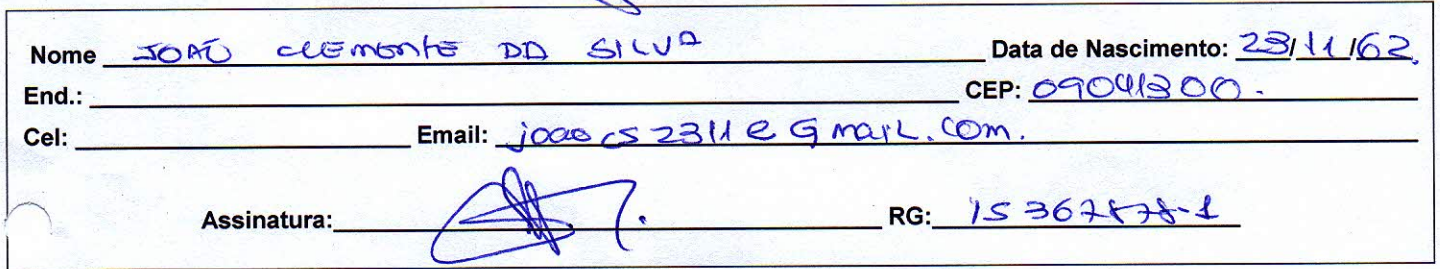 Nome JOAO CLEMENTE DA SILVA Data de Nascimento: 23/11/62
End.: CEP: 09041300.
Cel: Email: joaocs2311@Gmail.com.
Assinatura: RG: 15367878-1